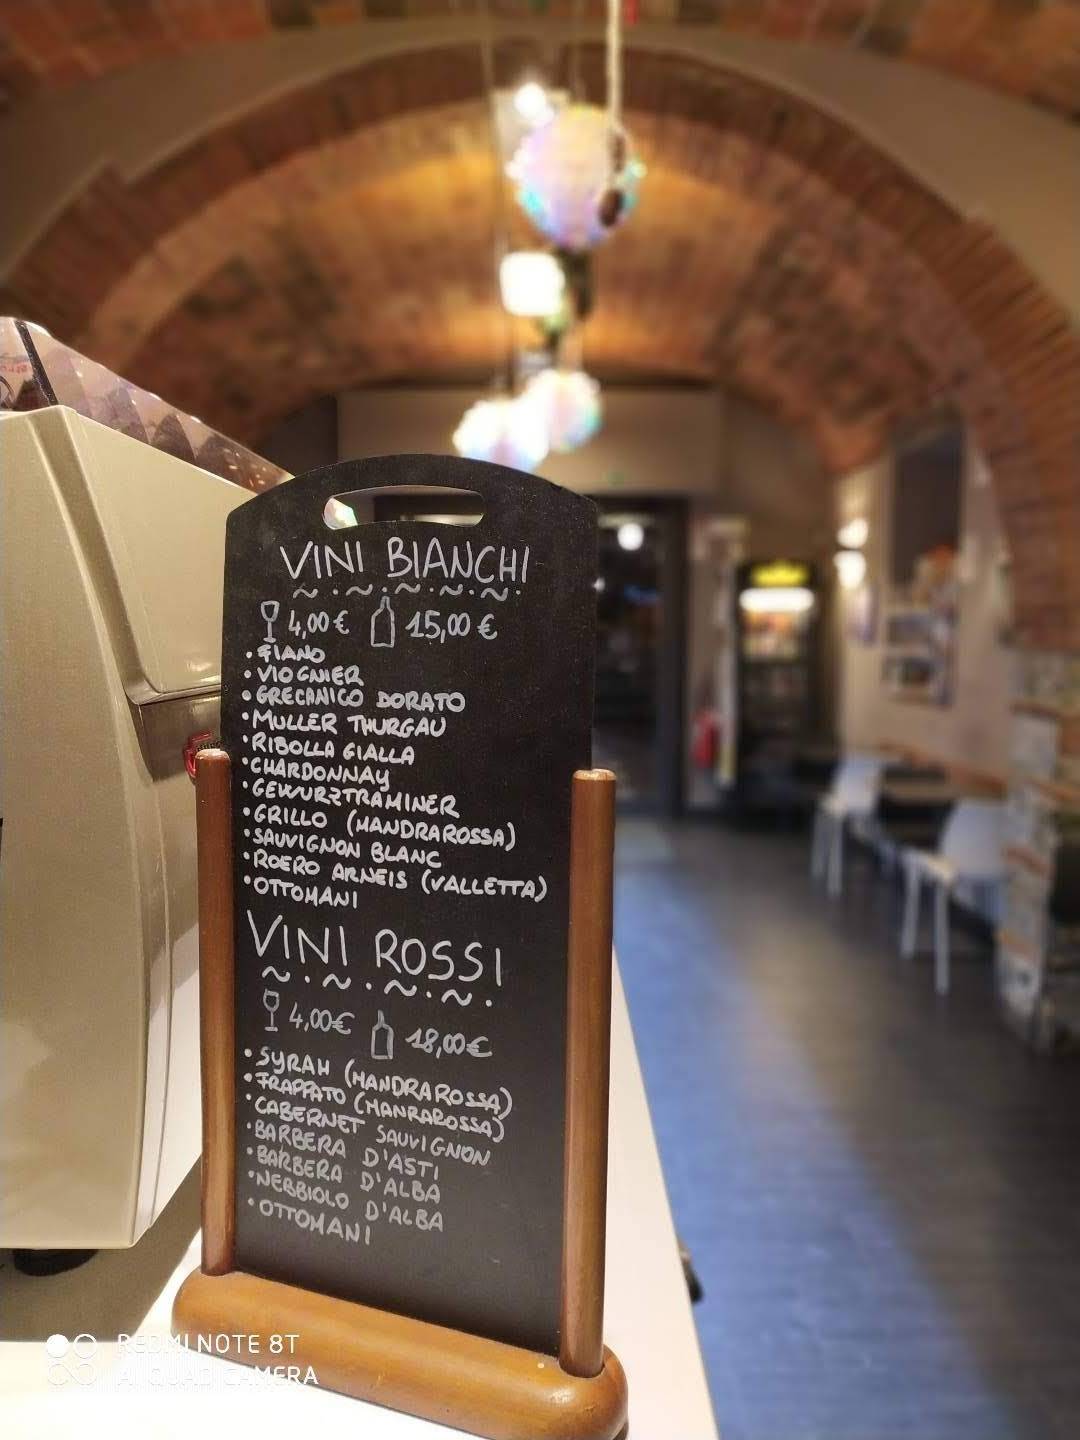 VINI BIANCHI
4,00 € 15,00 €
• FIANO
• VIOGNIER
• GRECANICO DORATO
• MULLER THURGAU
• RIBOLLA GIALLA
• CHARDONNAY
• GEWURZTRAMINER
• GRILLO (MANDRAROSSA)
• SAUVIGNON BLANC
• ROERO ARNEIS (VALLETTA)
• OTTOMANI
VINI ROSSI
4,00€ 18,00€
• SYRAH (MANDRAROSSA)
• FRAPPATO (MANRAROSSA)
• CABERNET SAUVIGNON
• BARBERA D'ASTI
• BARBERA D'ALBA
• NEBBIOLO D'ALBA
• OTTOMANI
REDMI NOTE 8T
AI QUAD CAMERA